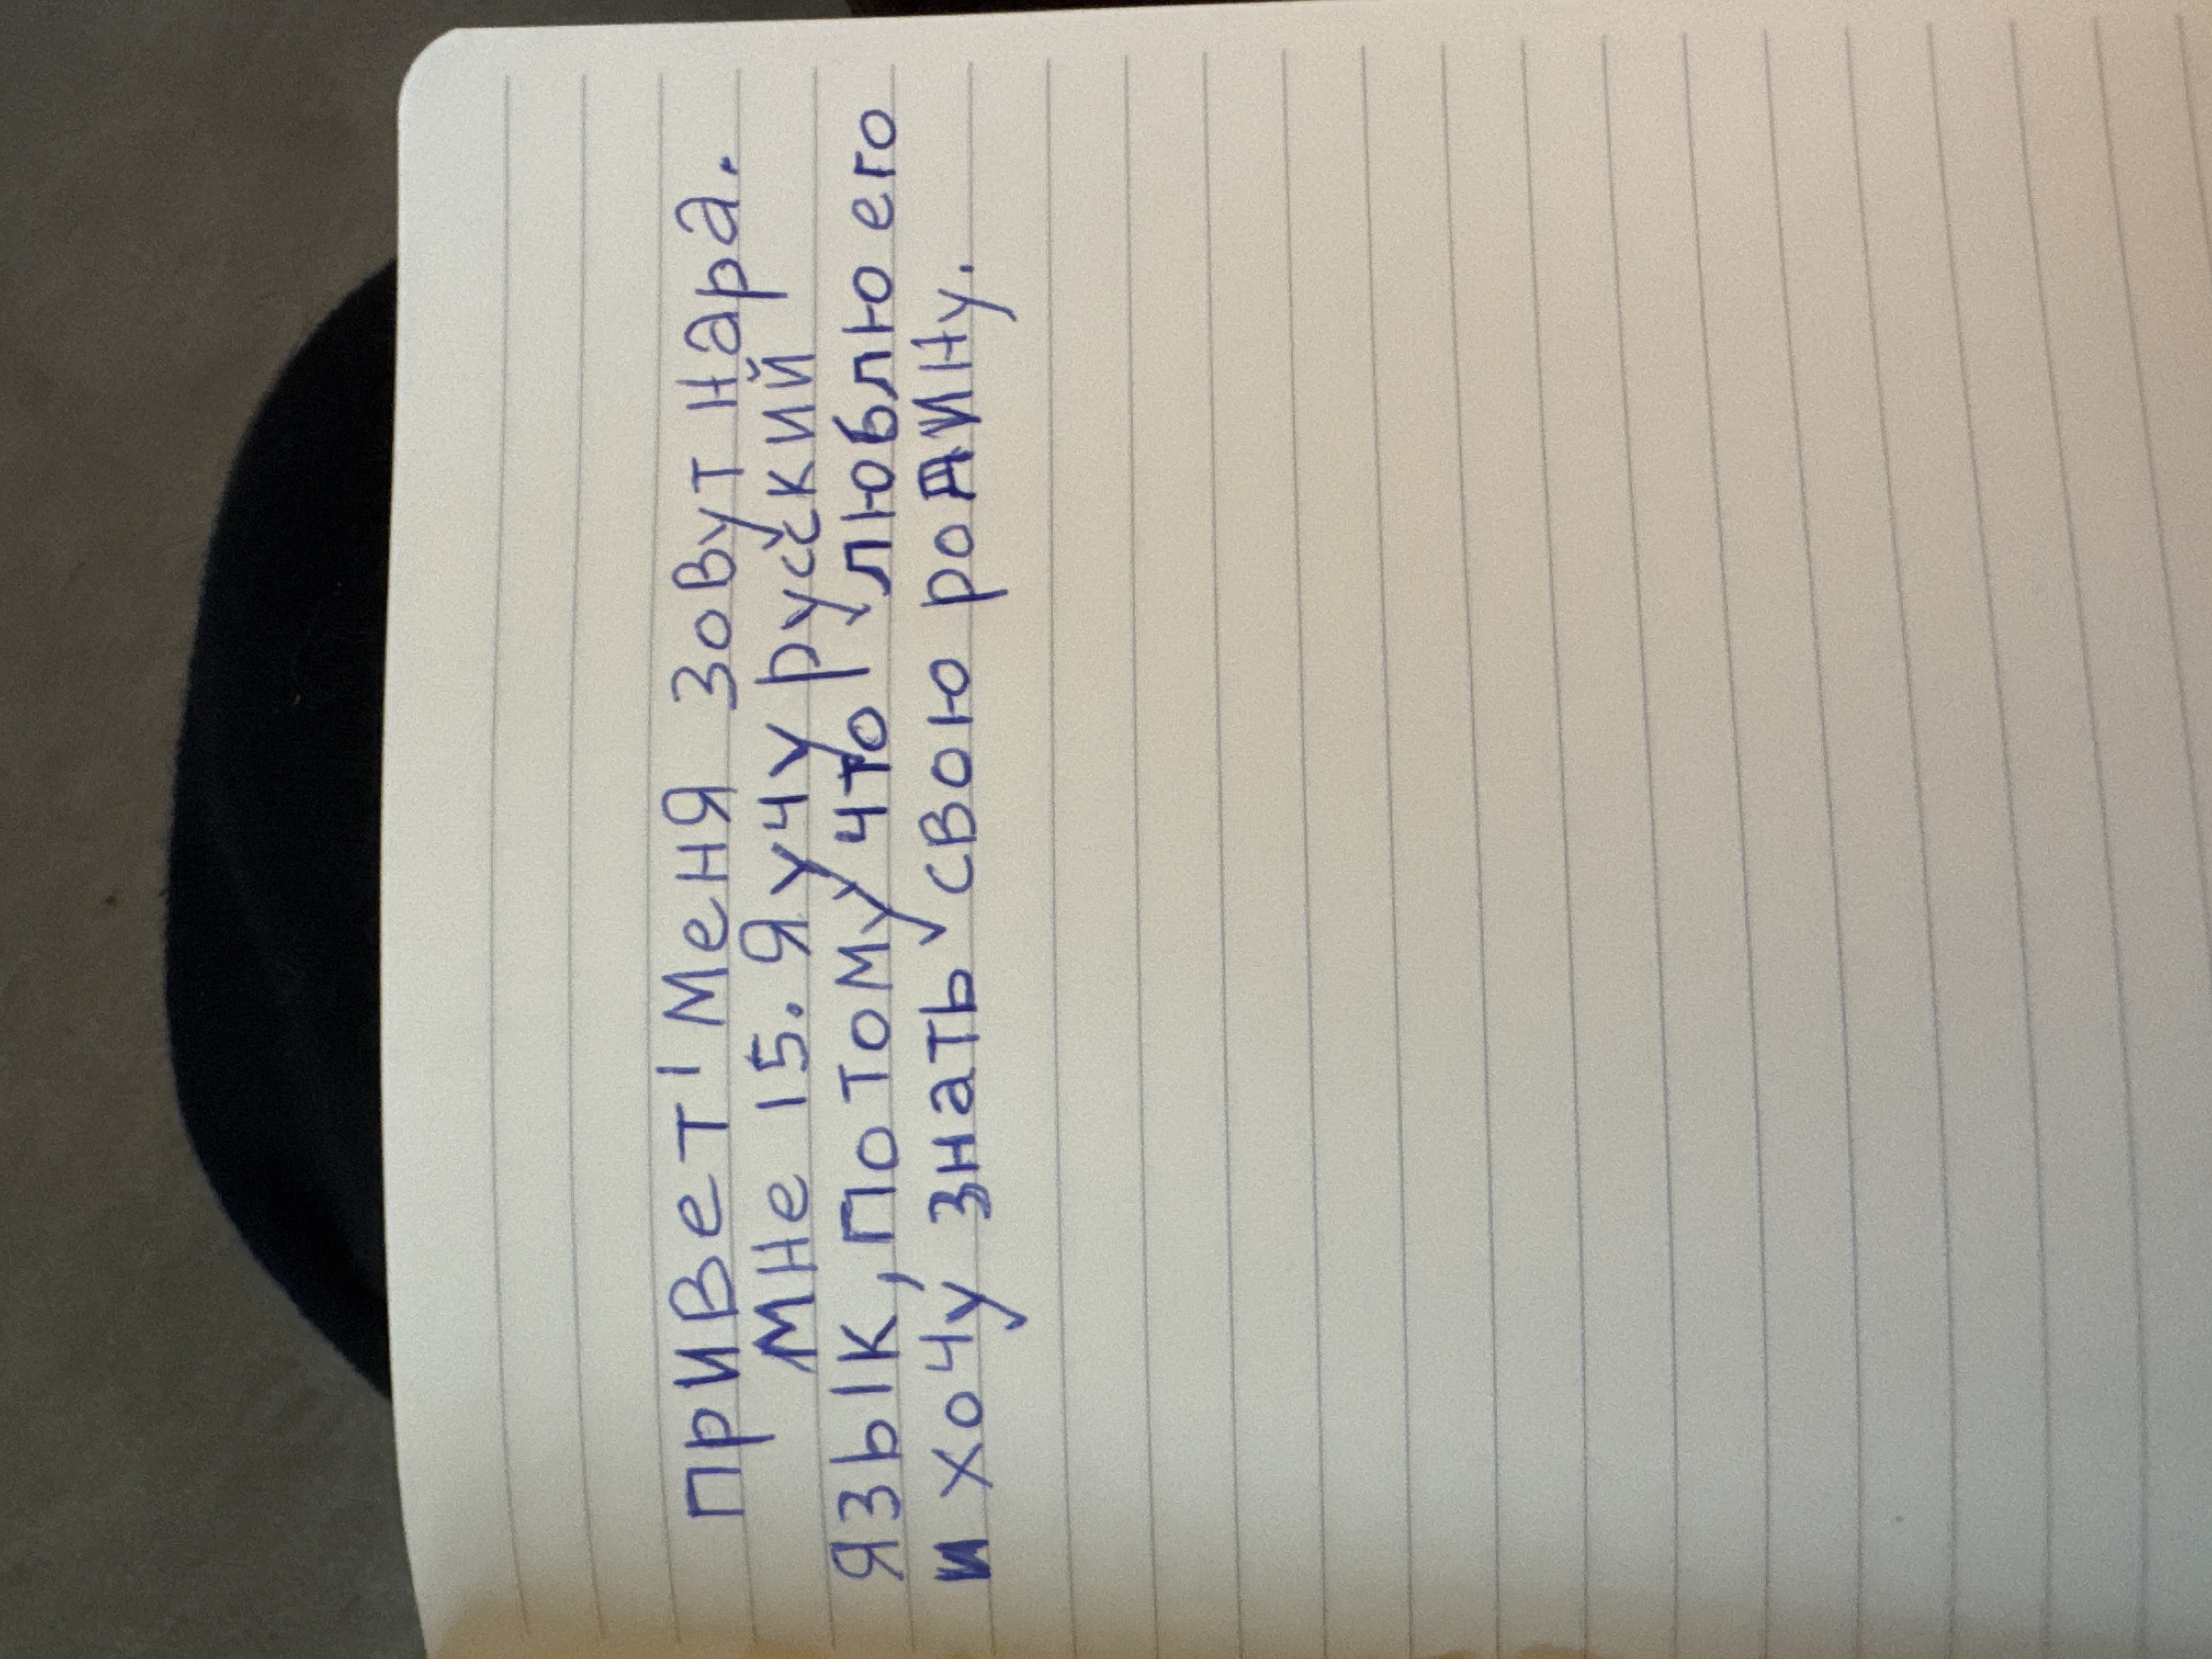 Привет! Меня зовут Нара.
Мне 15. Я учу русский
язык, потому что люблю его
и хочу знать свою родину.